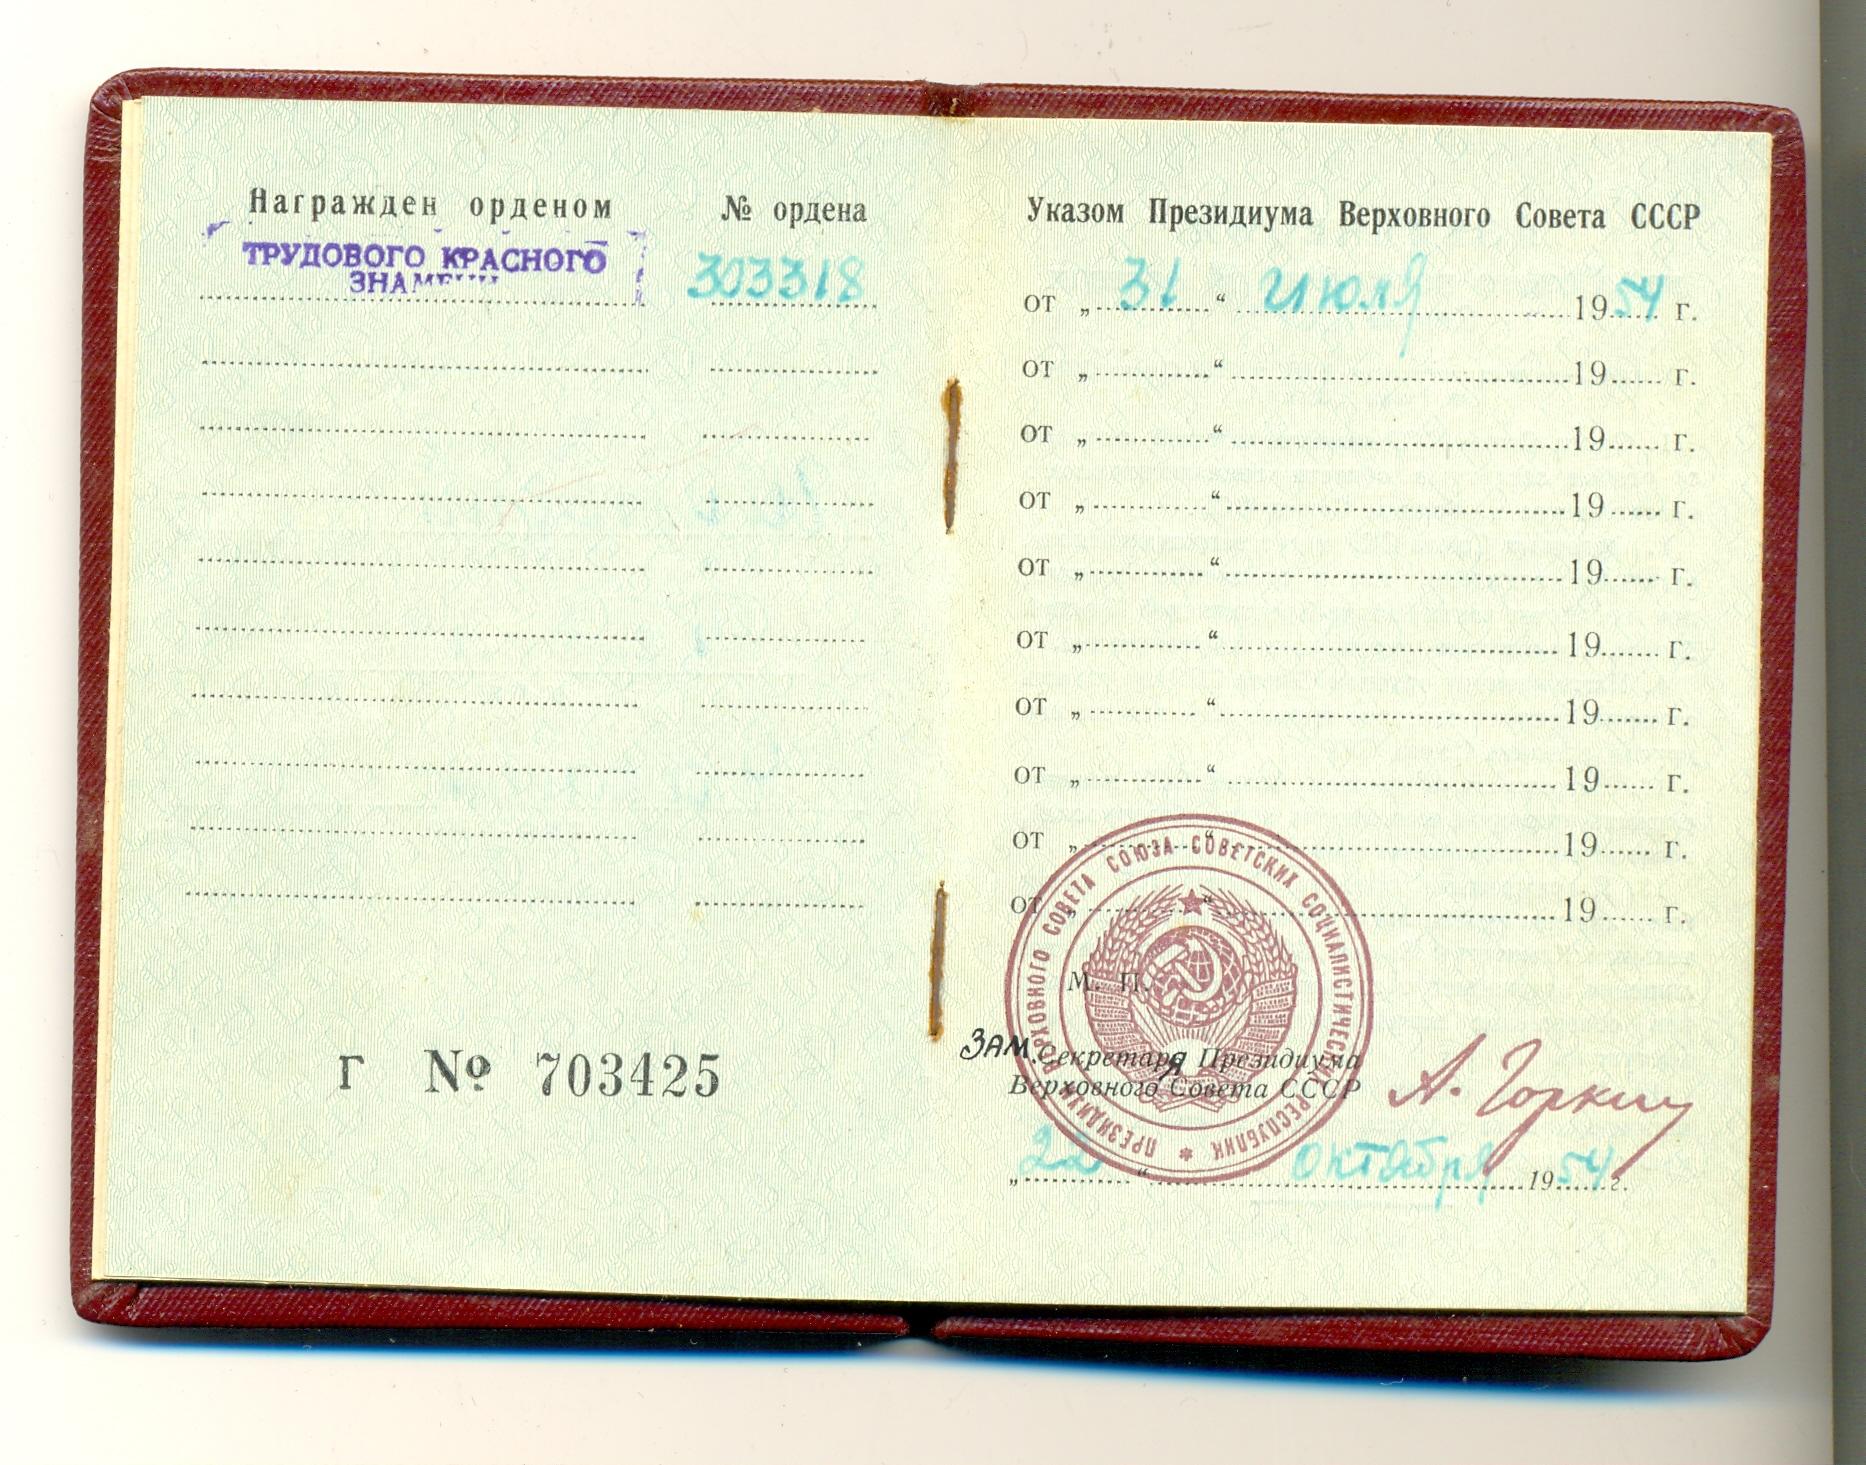 Награжден орденом № ордена
ТРУДОВОГО КРАСНОГО
ЗНАМЕНИ 303318
Г № 703425
Указом Президиума Верховного Совета СССР
от „ 31 “ июля 1954 г.
от „ “ 19 г.
от „ “ 19 г.
от „ “ 19 г.
от „ “ 19 г.
от „ “ 19 г.
от „ “ 19 г.
от „ “ 19 г.
от „ “ 19 г.
от „ “ 19 г.
ПРЕЗИДИУМ ВЕРХОВНОГО СОВЕТА СОЮЗА СОВЕТСКИХ СОЦИАЛИСТИЧЕСКИХ РЕСПУБЛИК *
М. П.
ЗАМ. Секретаря Президиума
Верховного Совета СССР
А. Горкин
„ 22 “ октября 1954 г.